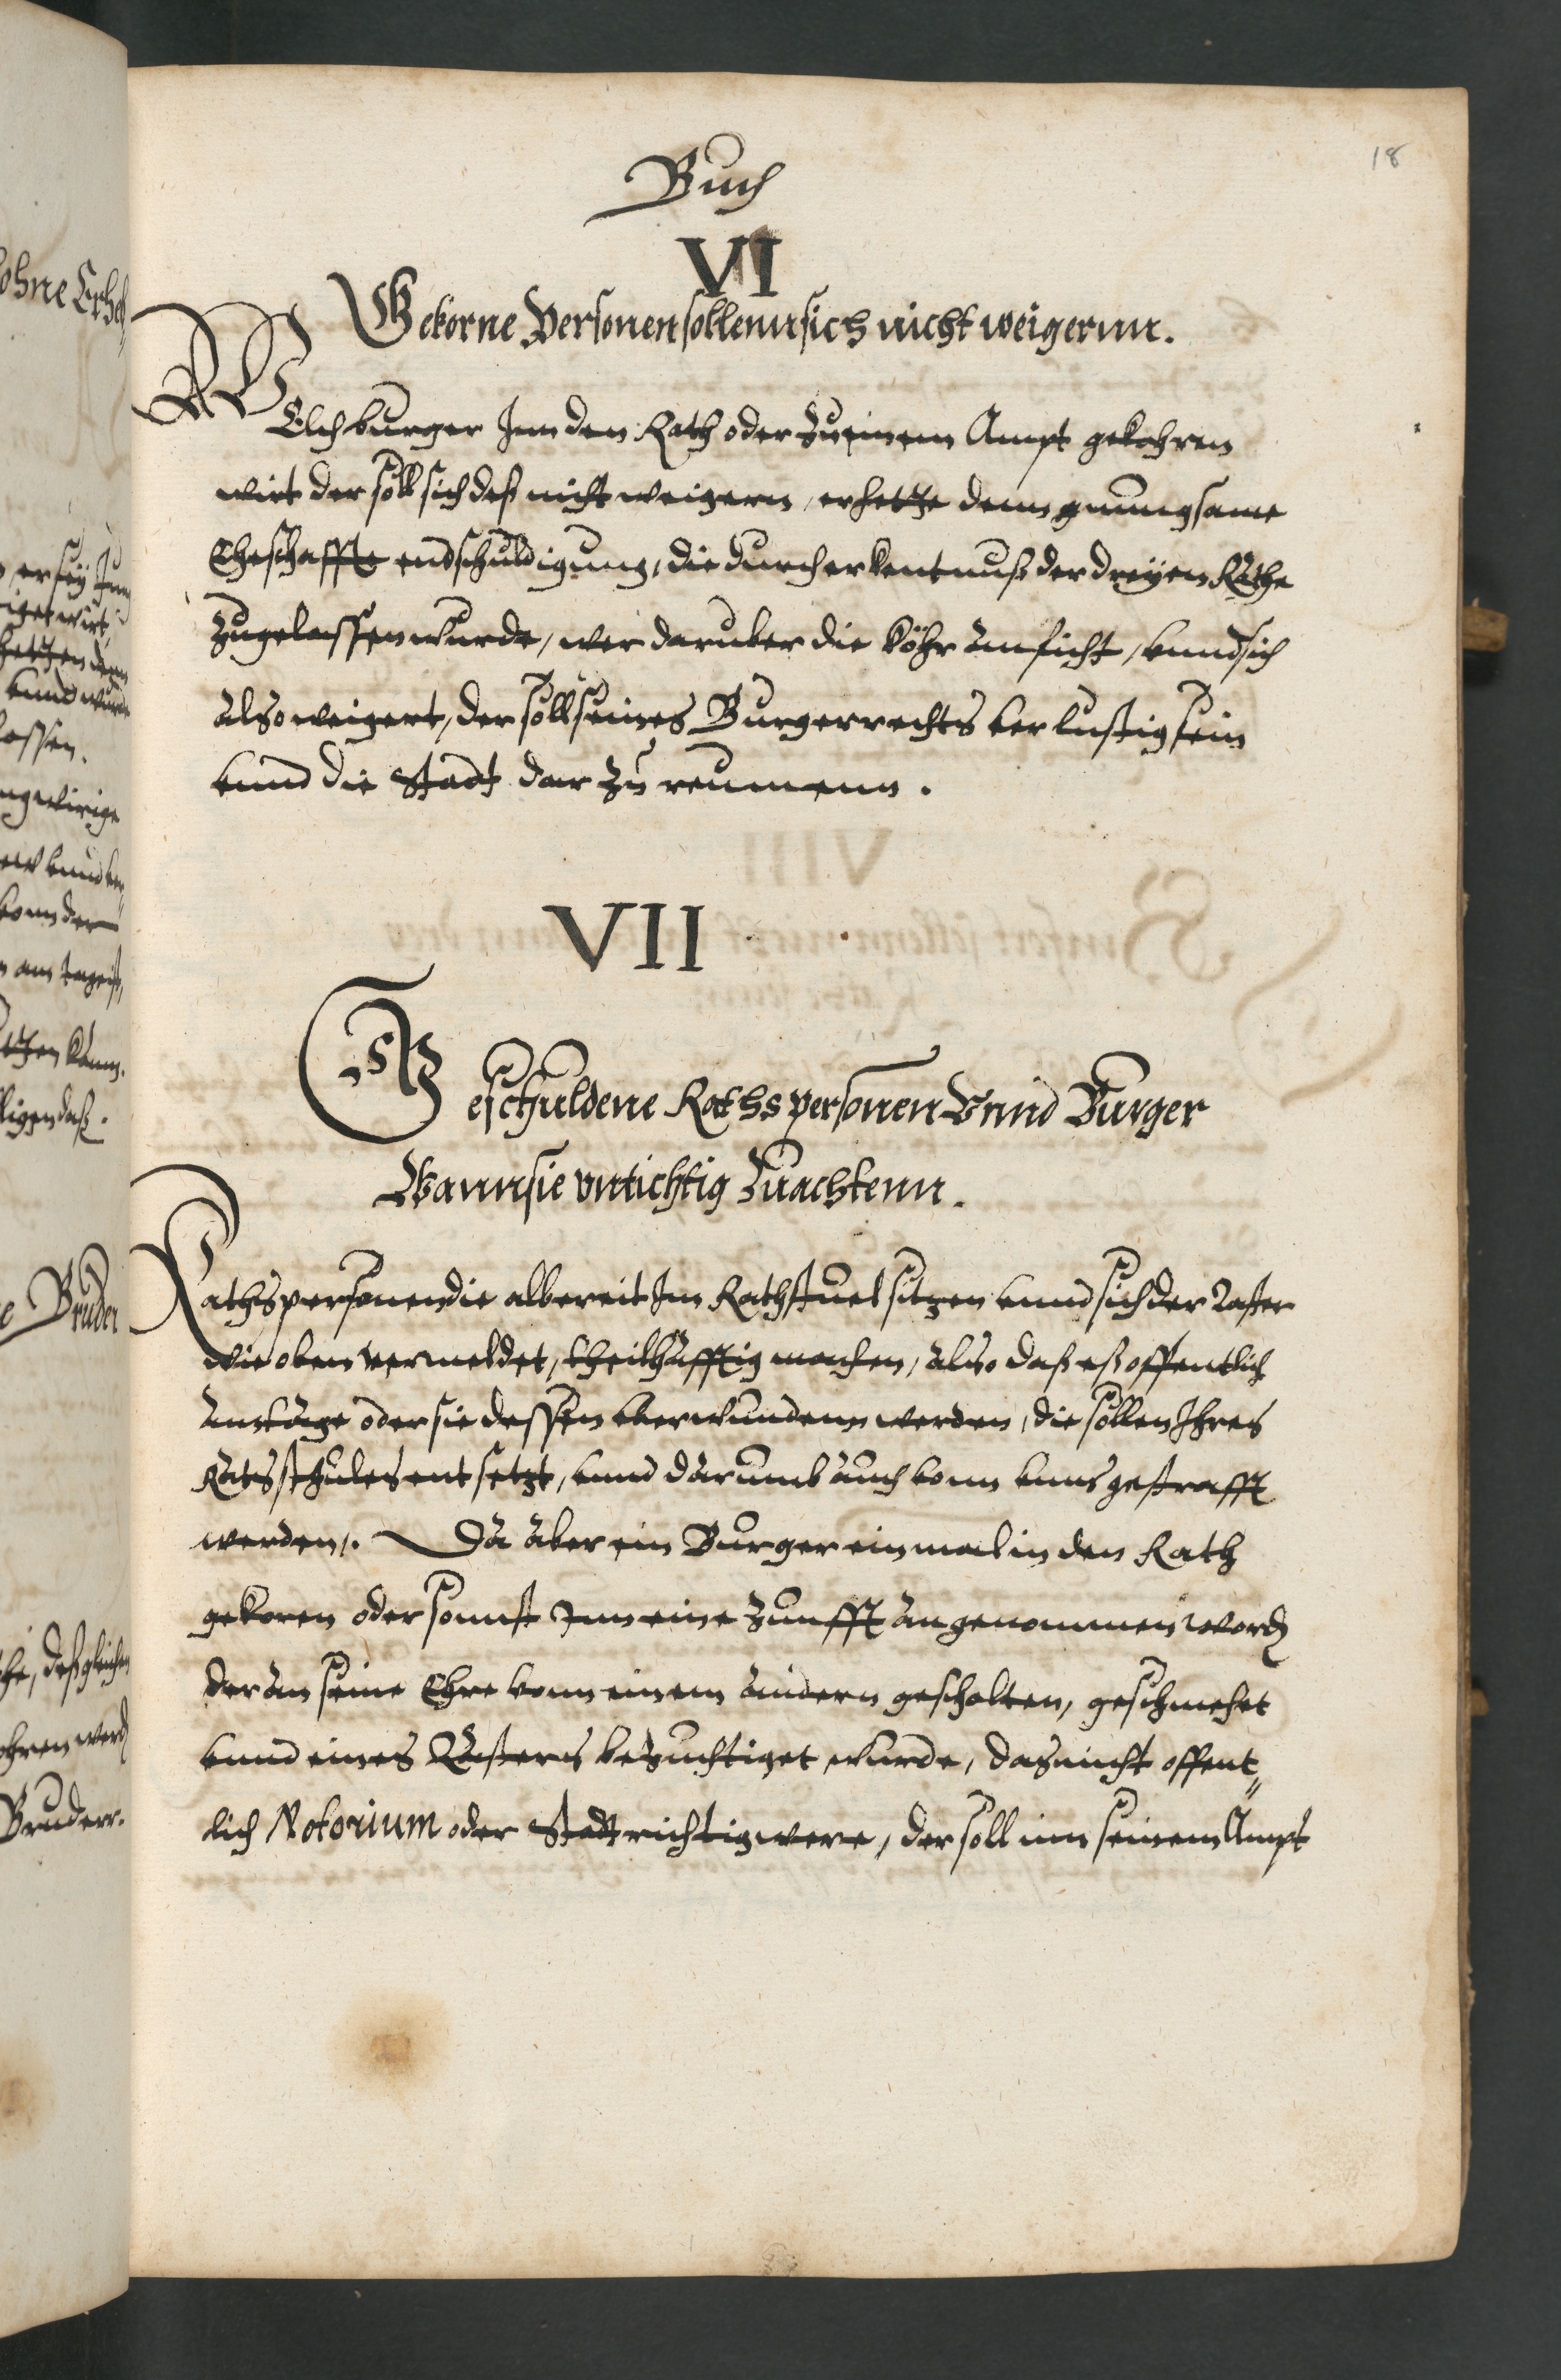 18
Buch
VI
Gekorne Personen sollenn sich nicht weigernn.
WElch burger Inn den Rath oder zu einem Ampt gekohren
wirt der soll sich deß nicht weigern, er hette dann gnungsame
Eheschaffte endschuldigung, die durch erkentnuß der dreyen Räthe
zugelassen wurde, wer daruber die köhr anficht, vnnd sich
also weigert, der soll seines Burgerrechts verlustig sein
vnnd die Stadt dar zu reumenn.
VII
Gescholdene Raths personen Vnnd Burger
Wann sie vntichtig zu achtenn.
Rathspersonen die albereit Im Rathstuel sitzen vnnd sich der Laster
wie oben vermeldet, theilhafftig machen, also daß eß offentlich
am tage oder sie dessen vberwundenn werden, die sollen Ihres
Ratssthules entsetzt, vnnd darumb auch vonn vnns gestrafft
werden. Da aber ein Burger einmal in den Rath
gekoren oder sonnst Inn eine zunfft angenommen word
der an seine Ehre vonn einem andern gescholten, geschmehet
vnnd eines Lasters bezuchtiget wurde, das nicht offent„
lich Notorium oder Stadtrichtig were, der soll inn seinem Ampt
ohne
er sey Inn
hetten denn
vnnd wurde
lassen.
vonn der
am tage ist,
kann.
Bruder
deßgleichen
Bruderr.